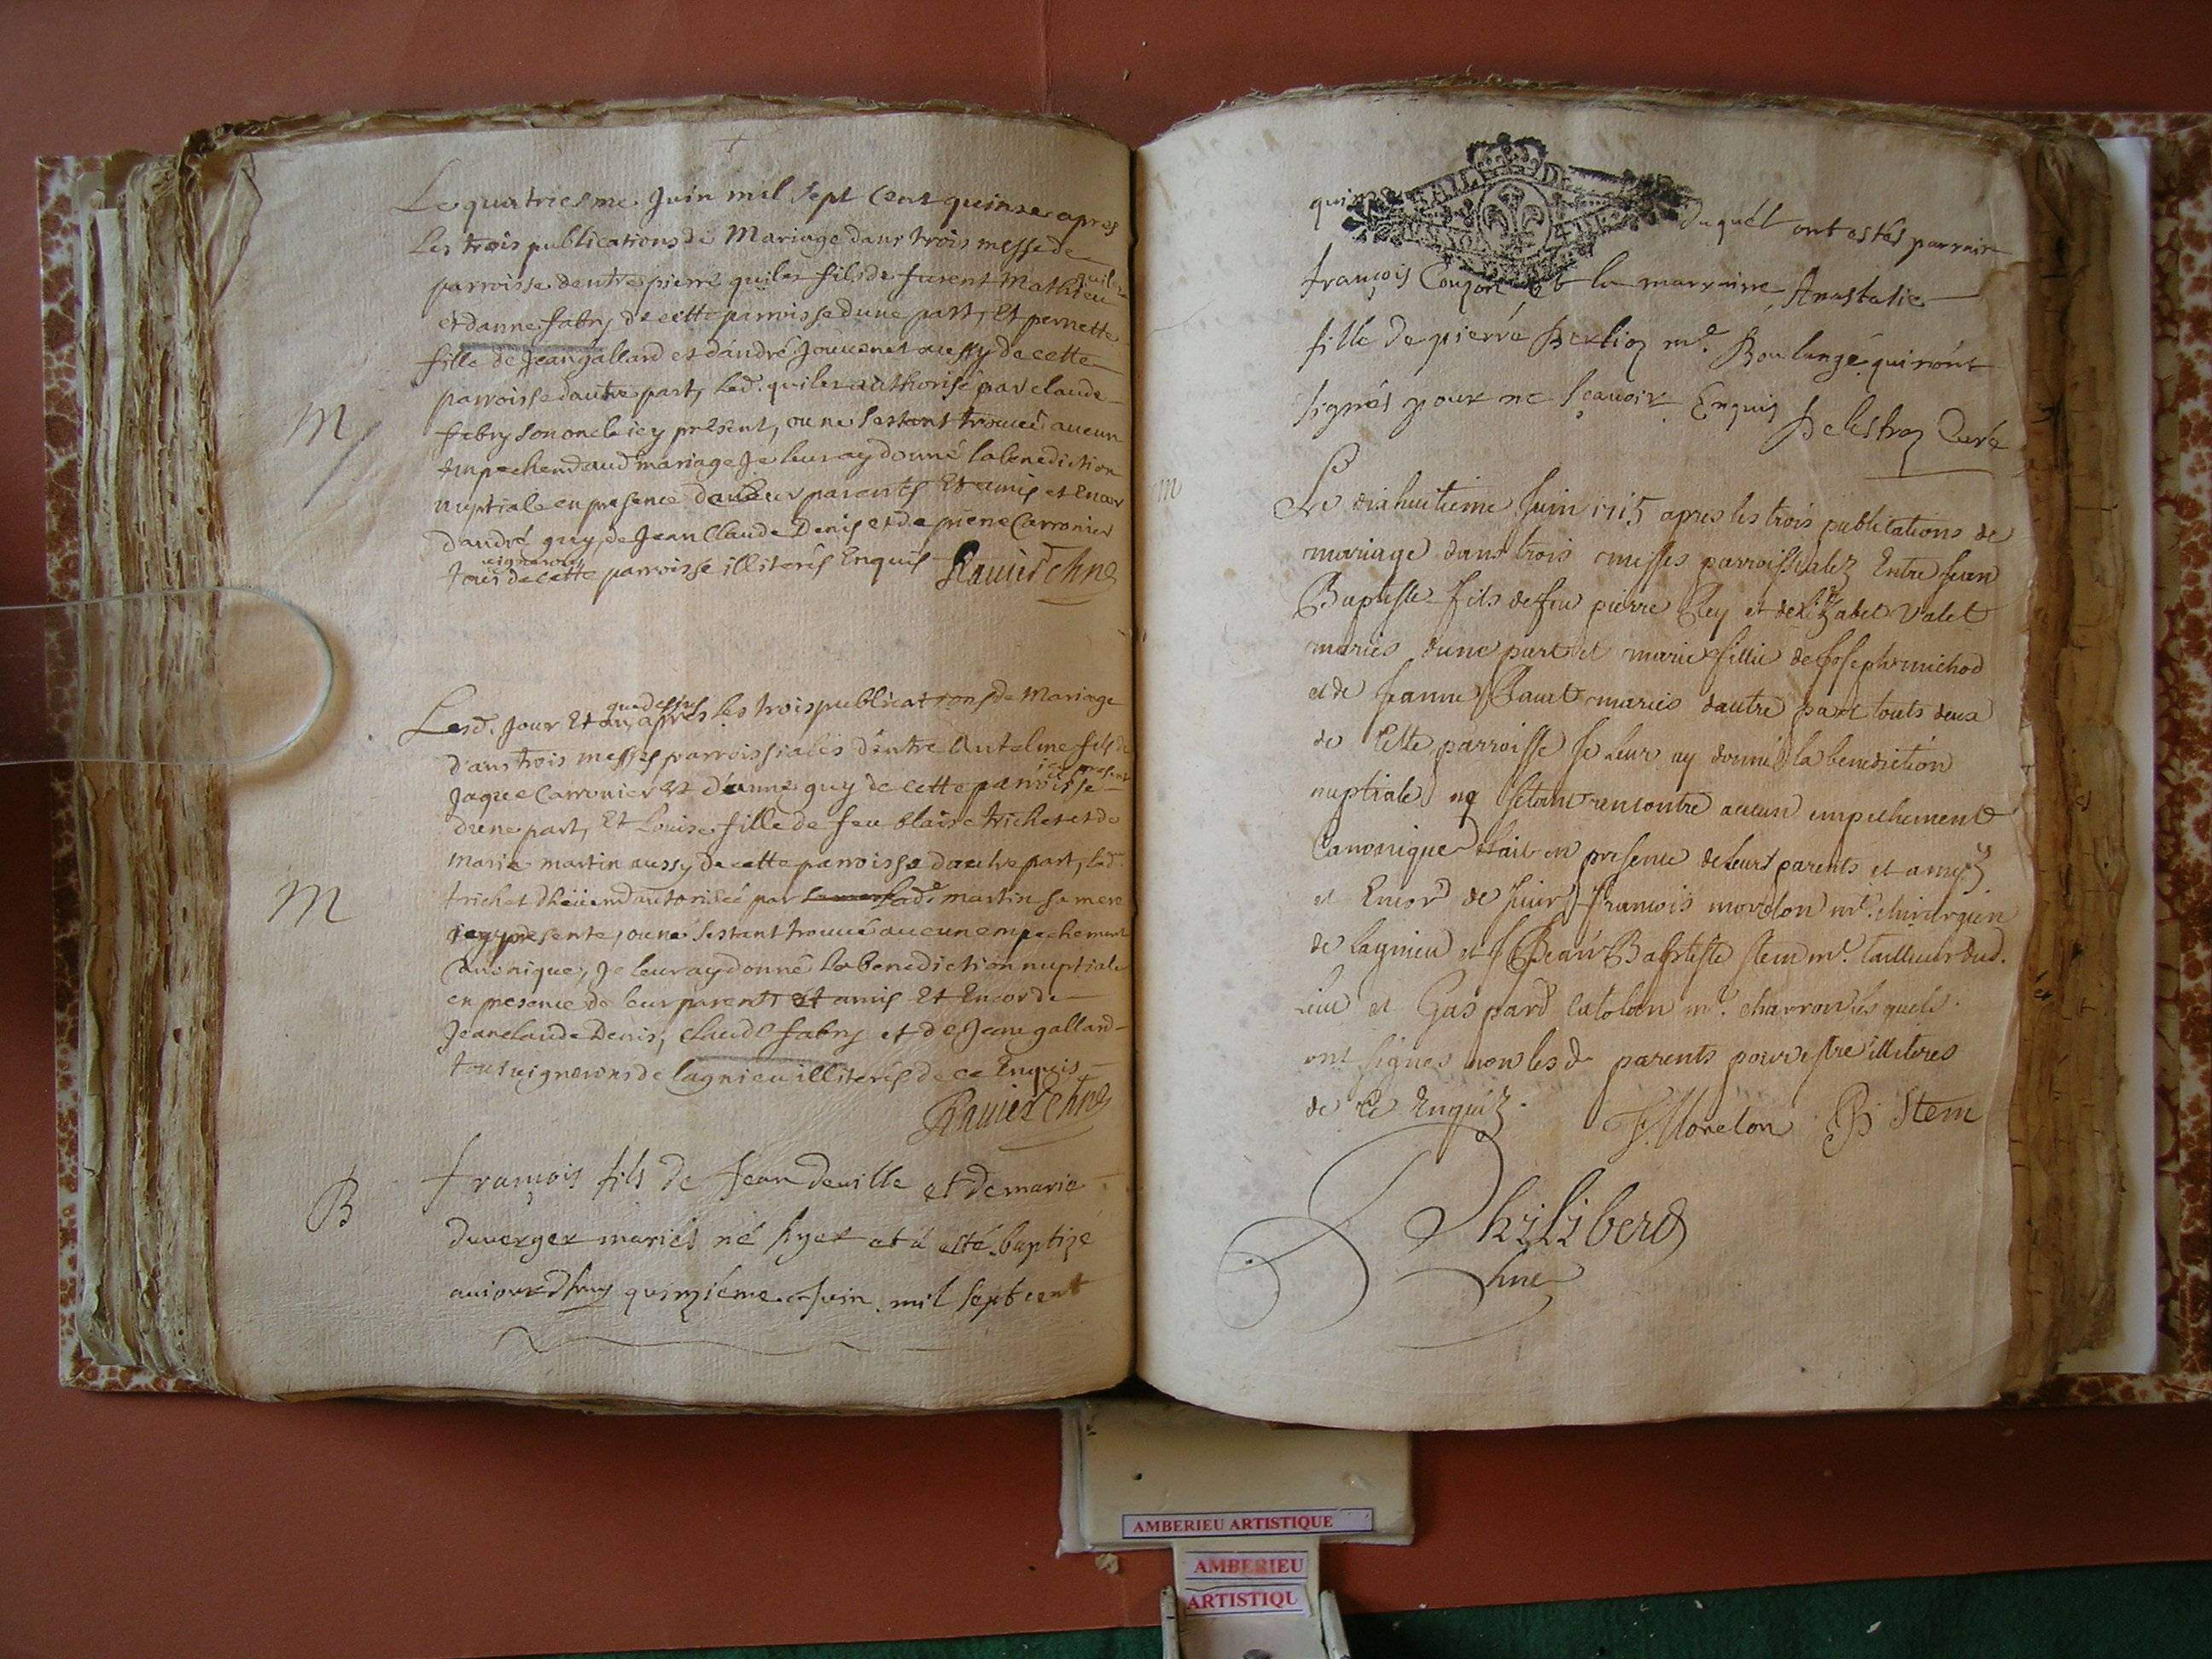 Le quatriesme Juin mil sept cent quinse apres
les trois publications de Mariage dans trois messe de
parroisse dentre pierre quiler fils de furent Mathieu quiler
et danne fabry de cette parroisse dune part, Et pernette
fille de Jean gallard et dandré Jouvenet aussy de cette
parroisse dautre part, led. quiler authorisé par claude
fabry son oncle icy present, ou ne sestant trouvé aucun
empechemd aud mariage Je leur ay donné la benediction
nuptiale en presence de leur parents Et amis et Encor
dandré guy, de Jean Claude Denis et de piene Carronier
vignerons
tous de cette parroisse illiterés Enquis Ravier
M
Lesd. Jour Et an que dessus apres les trois publications de Mariage
dans trois messes parroissiales dentre Antelme fils de
Jaque Carronier et danne guy de cette parroisse icy present
dune part, Et Louise fille de feu blaise trichet et de
Marie martin aussy de cette parroisse dautre part, lad.
trichet autorisée par lad. martin sa mere
icy presente, ou ne sestant trouvé aucun empechement
Canonique, Je leur ay donné la benediction nuptiale
en presence de leur parents et amis Et Encor de
Jean claude Denis, claude fabry et de Jean galland
tous vignerons de lagnieu illiterés de ce Enquis
Ravier
M
B
françois fils de Jean deville et de marie
duverger mariés né hyer et a esté baptizé
aujourdhuy quinziéme Juin mil sept cent
quinze duquel ont estés parrain
françois Couzon et la marraine Anastasie
fille de pierre Berlioz me. Boulangé qui nont
signés pour ne sçavoir Enquis
Delestraz Curé
Le dixhuitieme Juin 1715 apres les trois publications de
mariage dans trois messes parroissialez Entre Jean
Baptiste fils de feu pierre Rey et delizabet Valet
mariés dune part et marie fillie de Joseph michod
et de Jeanne mariés dautre part touts deux
de cette parroisse Je leur ay donné la benediction
nuptiale setant rencontré aucun empechement
Canonique fait en presence de leurs parents et amys
et Encor de sieur François morelon me. chirurgien
de lagnieu et Jean Baptiste stem me. tailleur dud.
Lieu et Gaspard me. charron lesquels
ont signes non lesd parents pour estre illiteres
de ce Enquiz.
F. Morelon B Stem
Philibert